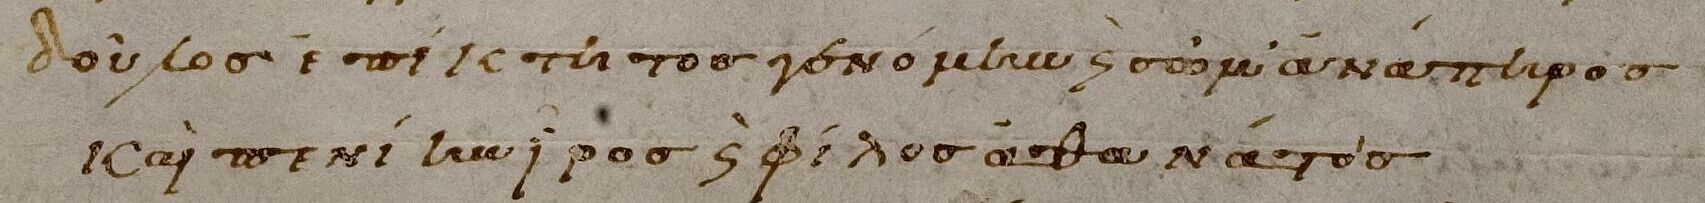 δοῦλος ἐπίκτητος γενόμην ϗ σῶμ' ἀνάπηρος
καὶ πενίην ἶρος ϗ φίλος ἀθανάτοις